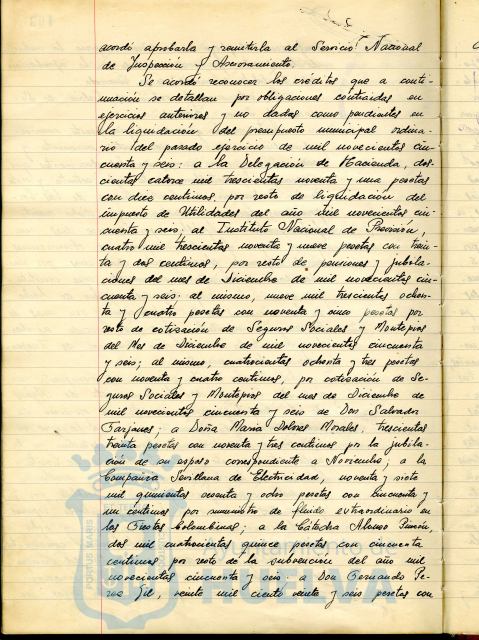 acordó aprobarla y remitirla al Servicio Nacional
de Inspección y Asesoramiento.
Se acordó reconocer los créditos que a conti-
nuación se detallan por obligaciones contraidas en
ejercicios anteriores y no dadas como pendientes en
la liquidación del presupuesto municipal ordina-
rio del pasado ejercicio de mil novecientos cin-
cuenta y seis: a la Delegación de Hacienda, dos-
cientas catorce mil trescientas noventa y una pesetas
con diez centimos, por resto de liquidación del
impuesto de Utilidades del año mil novecientos cin-
cuenta y seis; al Instituto Nacional de Previsión,
cuatro mil trescientas noventa y nueve pesetas con trein-
ta y dos centimos, por resto de pensiones y jubila-
ciones del mes de Diciembre de mil novecientos cin-
cuenta y seis; al mismo, nueve mil trescientas ochen-
ta y cuatro pesetas con noventa y cinco pesetas por
resto de cotización de Seguros Sociales y Montepios
del Mes de Diciembre de mil novecientos cincuenta
y seis; al mismo, cuatrocientas ochenta y tres pesetas
con noventa y cuatro centimos, por cotización de Se-
guros Sociales y Montepios del mes de Diciembre de
mil novecientos cincuenta y seis de Don Salvador
a Doña Maria Dolores Morales, trescientas
treinta pesetas con noventa y tres centimos por la jubila-
ción de su esposo correspondiente a Noviembre; a la
Compañia Sevillana de Electricidad, noventa y siete
mil quinientas sesenta y ocho pesetas con cincuenta y
un centimos por suministro de fluido extraordinario en
las Fiestas Colombinas; a la Cátedra Alonso Pinzón,
dos mil cuatrocientas quince pesetas con cincuenta
centimos por resto de la subvención del año mil
novecientos cincuenta y seis; a Don Fernando Pe-
Gil, veinte mil ciento veinte y seis pesetas con
Ayuntamiento de
HUELVA
PORTUS MARIS